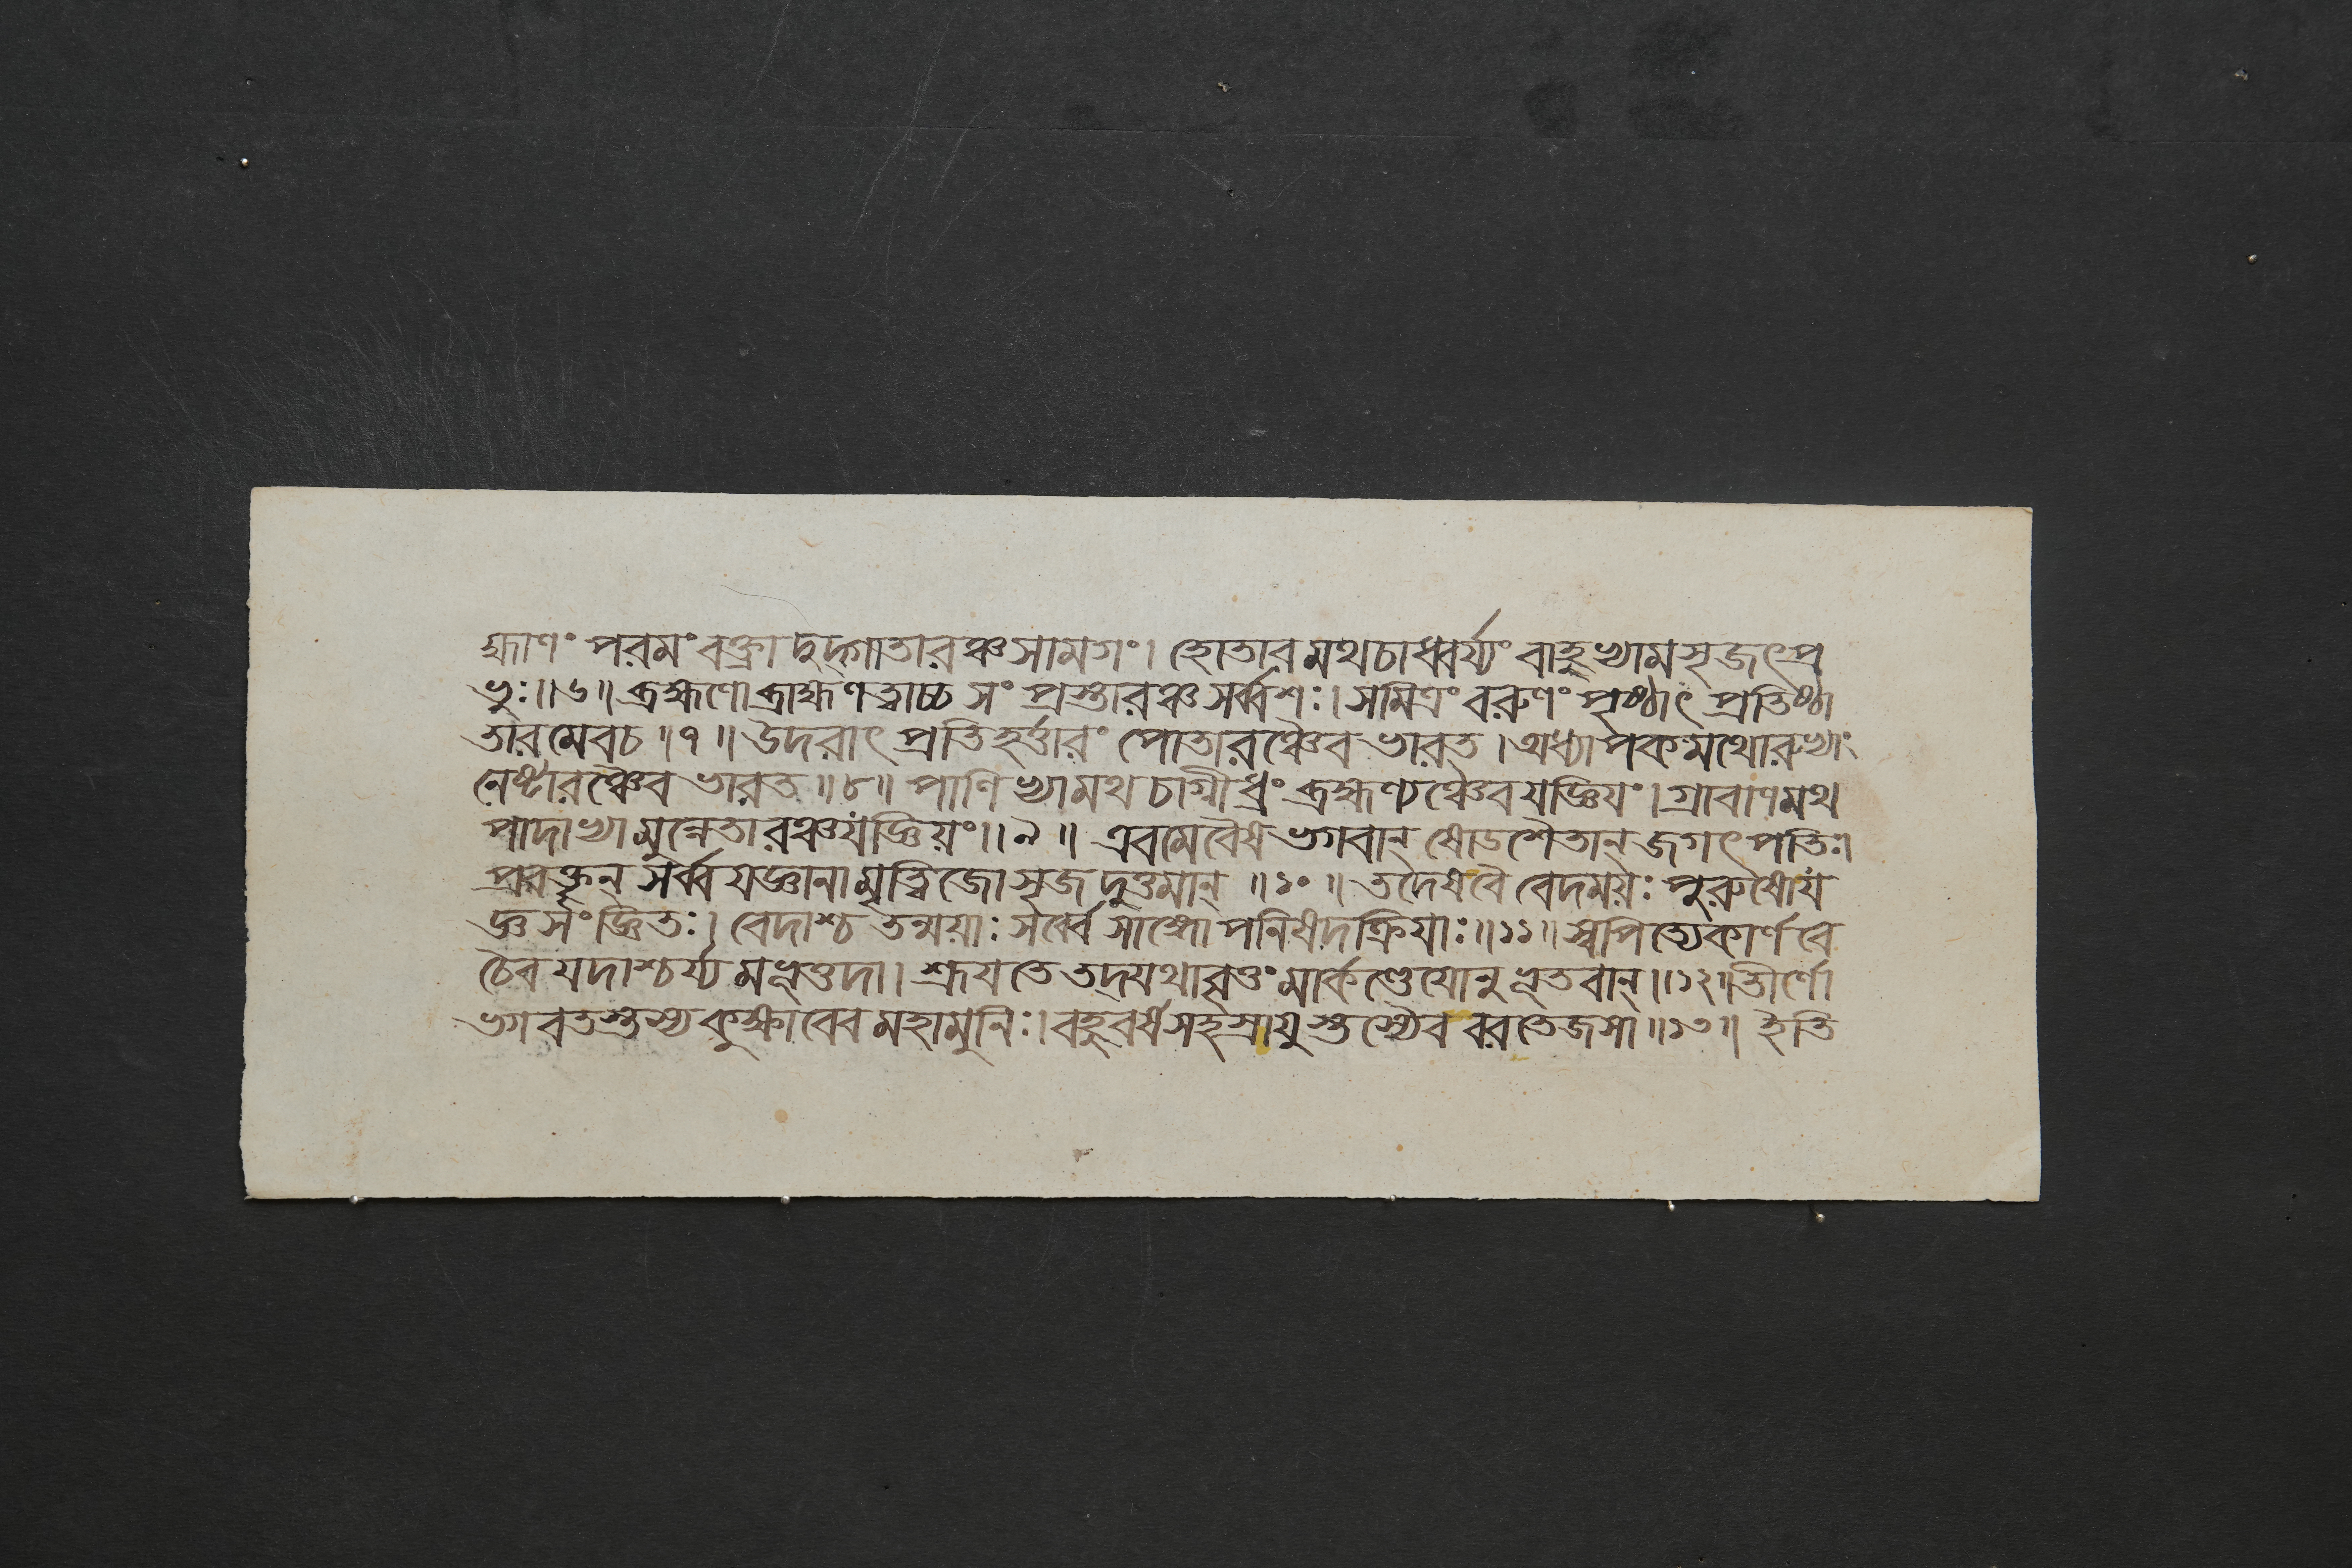 হ্মাণং পরমং বক্ত্রাদুদ্গাতারঞ্চসামগং। হোতারমথচাধ্বর্য্যং বাহুভ্যামসৃজৎপ্র
ভুঃ॥৬॥ ব্রহ্মণোব্রাহ্মণত্বাচ্চ সং প্রস্তারঞ্চ সর্ব্বশঃ। সমিত্রং বরুণং পৃষ্ঠাৎ প্রতিষ্ঠা
তারমেবচ॥৭॥ উদরাৎ প্রতিহর্ত্তারং পোতারঞ্চৈব ভারত। অধ্যাপকমথোরুভ্যাং
নেষ্টারঞ্চৈব ভারত॥৮॥ পাণিভ্যামথ চাগ্নীধ্রং ব্রহ্মণ্যঞ্চৈবযজ্ঞিযং। গ্রাবাণমথ
পাদাভ্যামুন্নেতারঞ্চযজ্ঞিয়ং॥৯॥ এবমেবৈষ ভগবান্ ষোডশৈতান্ জগৎপতিঃ।
প্রবক্তৃন্ সর্ব্বযজ্ঞানামৃত্বিজোসৃজদুত্তমান্॥১০॥ তদেষবৈ বেদময়ঃ পুরুষোয
জ্ঞসংজ্ঞিতঃ। বেদাশ্চ তন্ময়াঃ সর্ব্বে সাঙ্গোপনিষদক্রিয়াঃ॥১১॥ স্বপিত্যেকার্ণবে
চৈব যদাশ্চর্য্যমভূত্তদা। শ্রূযতে তদ্যথাবৃত্তং মার্কণ্ডেযোনুভূতবান্॥১২॥ জীর্ণো
ভগবতস্তস্য কুক্ষাবেব মহামুনিঃ। বহুবর্ষসহস্রাযুস্তস্যৈব বরতেজসা॥১৩॥ ইতি